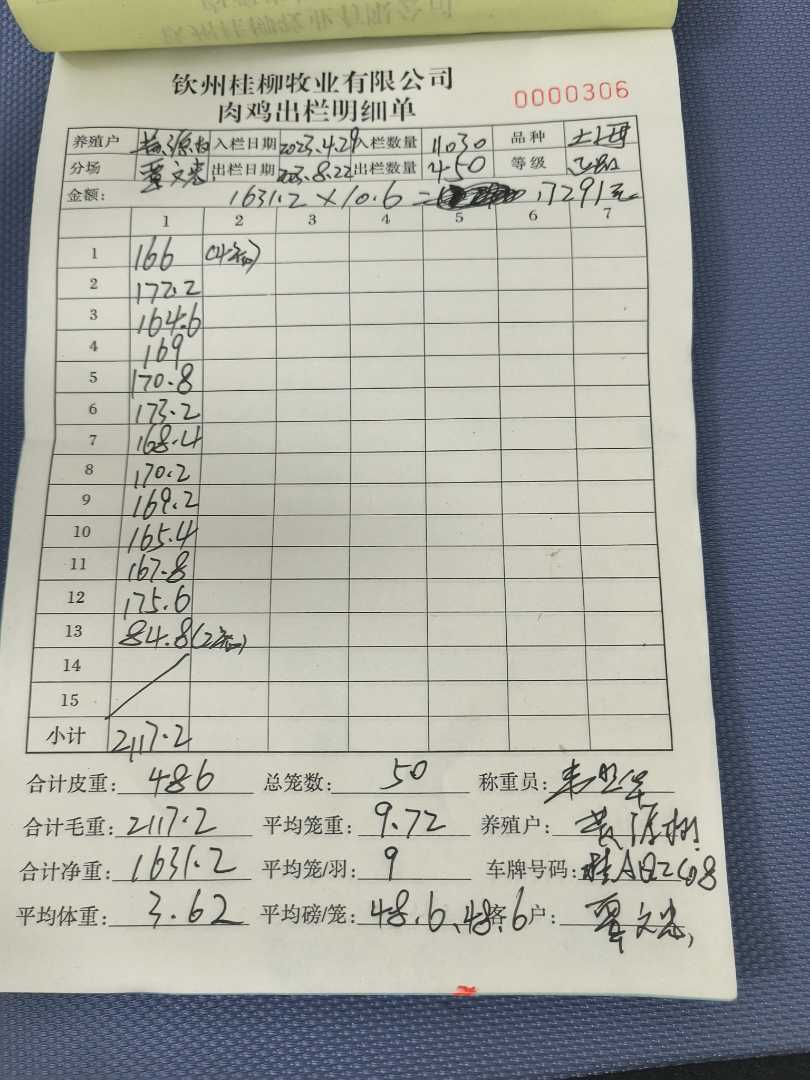 钦州桂柳牧业有限公司
肉鸡出栏明细单
0000306
养殖户 黄源树 入栏日期 2023.4.29 入栏数量 11030 品种
分场 覃文忠 出栏日期 2023.8.22 出栏数量 450 等级 正品
金额: 1631.2×10.6= 17291元
1 2 3 4 5 6 7
1 166 (4笼)
2 172.2
3 164.6
4 169
5 170.8
6 173.2
7 168.4
8 170.2
9 169.2
10 165.4
11 167.8
12 175.6
13 84.8 (2笼)
14
15
小计 2117.2
合计皮重: 486 总笼数: 50 称重员:
合计毛重: 2117.2 平均笼重: 9.72 养殖户: 黄源树
合计净重: 1631.2 平均笼/羽: 9 车牌号码:
平均体重: 3.62 平均磅/笼: 48.6、48.6 客户: 覃文忠